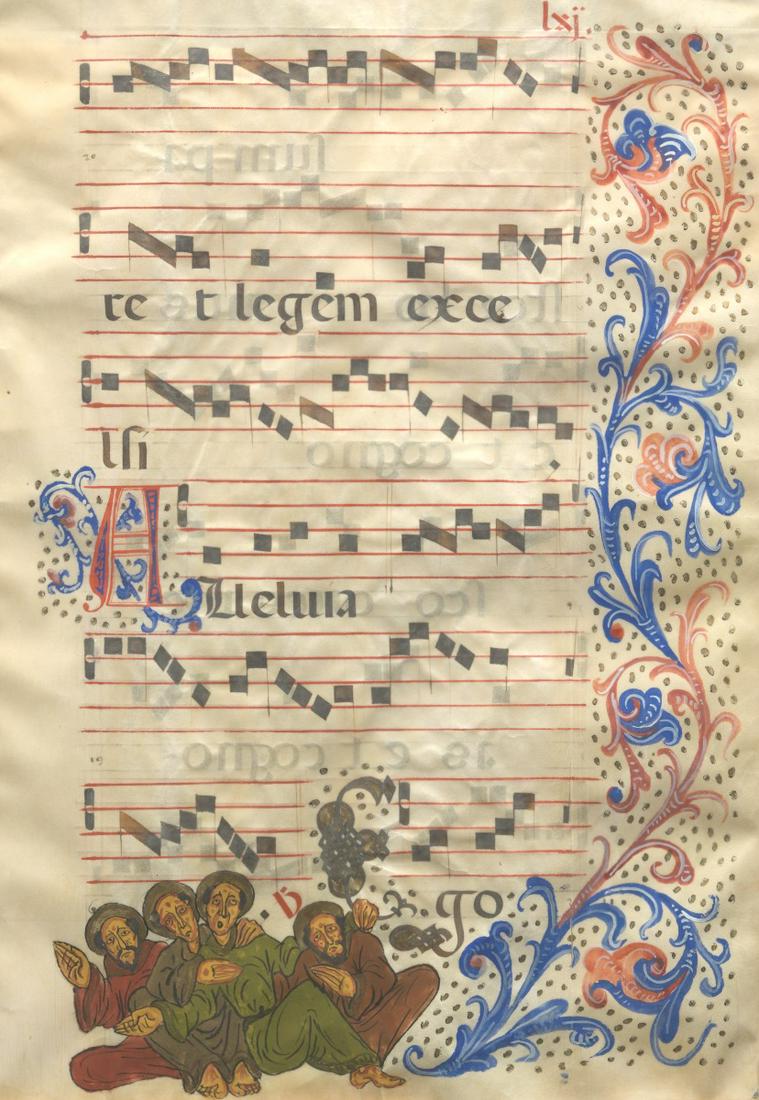 lxij.
re t legem exce
lsi
ALleluia
℣ Ego